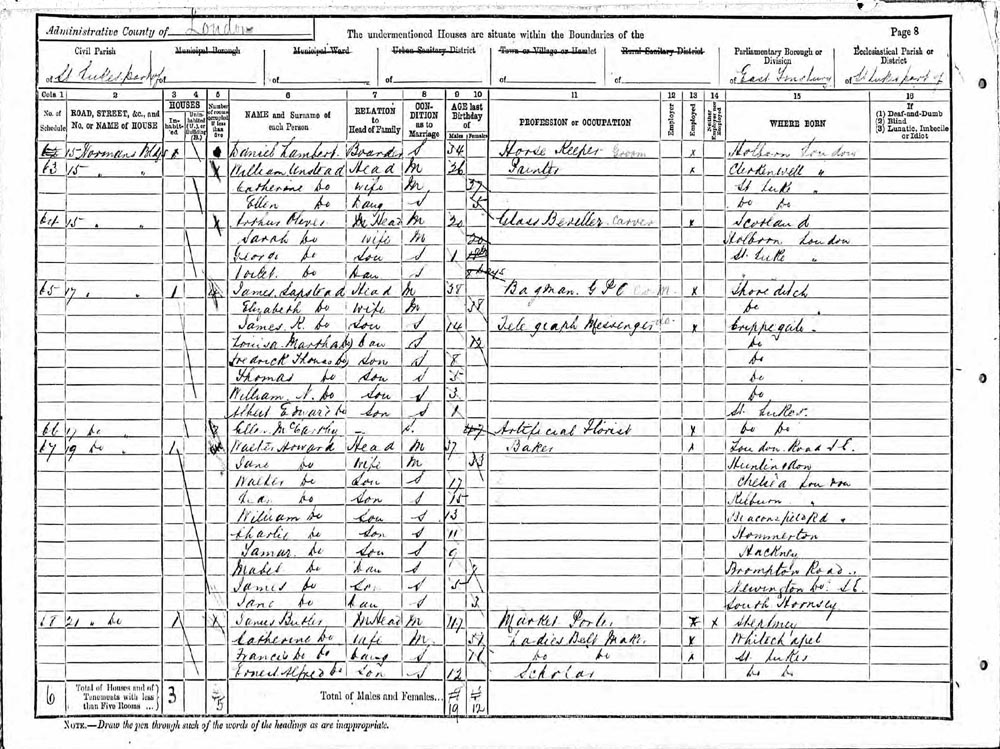 Administrative County of London
The undermentioned Houses are situate within the Boundaries of the
Page 8
Civil Parish
Municipal Borough
Municipal Ward
Urban Sanitary District
Town or Village or Hamlet
Rural Sanitary District
Parliamentary Borough or Division
Ecclesiastical Parish or District
of St Lukes part of
of
of
of
of
of East Finsbury
of St Lukes part of
Cols 1 2 3 4 5 6 7 8 9 10 11 12 13 14 15 16
No. of Schedule
ROAD, STREET, &c., and No. or NAME of HOUSE
HOUSES
Inhabited
Uninhabited (U.), or Building (B.)
Number of rooms occupied if less than five
NAME and Surname of each Person
RELATION to Head of Family
CONDITION as to Marriage
AGE last Birthday of
Males
Females
PROFESSION or OCCUPATION
Employer
Employed
Neither Employer nor Employed
WHERE BORN
If
(1) Deaf-and-Dumb
(2) Blind
(3) Lunatic, Imbecile or Idiot
62 15 Normans Bldgs Daniel Lambert Boarder S 34 Horse Keeper Groom x Holborn London
63 15 " " x William Head M 36 Painter x Clerkenwell "
Catherine Do Wife M 37 St Luke "
Ellen Do Daug S 5 Do Do
64 15 " " x Arthur Head M 20 Glass Beveller Carver x Scotland
Sarah Do Wife M 20 Holborn London
George Do Son S 1 St Luke "
Violet Do Dau S days
65 17 " " 1 4 James Sapstead Head M 38 Bagman G P O x Shoreditch
Elizabeth Do Wife M 38 Do "
James K. Do Son S 14 Telegraph Messenger x Cripplegate
Louisa Martha Do Dau S 12 Do
Frederick Thomas Do Son S 8 Do
Thomas Do Son S 5 Do
William N. Do Son S 3 Do
Albert Edward Do Son S 1 St Lukes
66 17 Do " McCarthy – S 47 Artificial Florist x Do Do
67 19 Do " 1 4 Walter Howard Head M 37 Baker x London Road S.E.
Jane Do Wife M 33 Huntingdon
Walter Do Son S 17 Chelsea London
Do Son S 15 Kilburn "
William Do Son S 13 Beaconsfield Rd "
Charlie Do Son S 11 Hommerton
Do Son S 9 Hackney
Mabel Do Dau S 7 Brompton Road
James Do Son S 5 Newington Do S.E.
Jane Do Dau S 3 South Hornsey
68 21 " Do 1 x James Butler Head M 47 Market Porter x x Stepney
Catherine Do Wife M Ladies Belt Maker x Whitechapel
Francis Do Daug S Do Do x St Lukes
Ernest Alfred Do Son S 12 Scholar Do Do
6
Total of Houses and of Tenements with less than Five Rooms ...
3
5
Total of Males and Females...
19 12
NOTE.—Draw the pen through such of the words of the headings as are inappropriate.